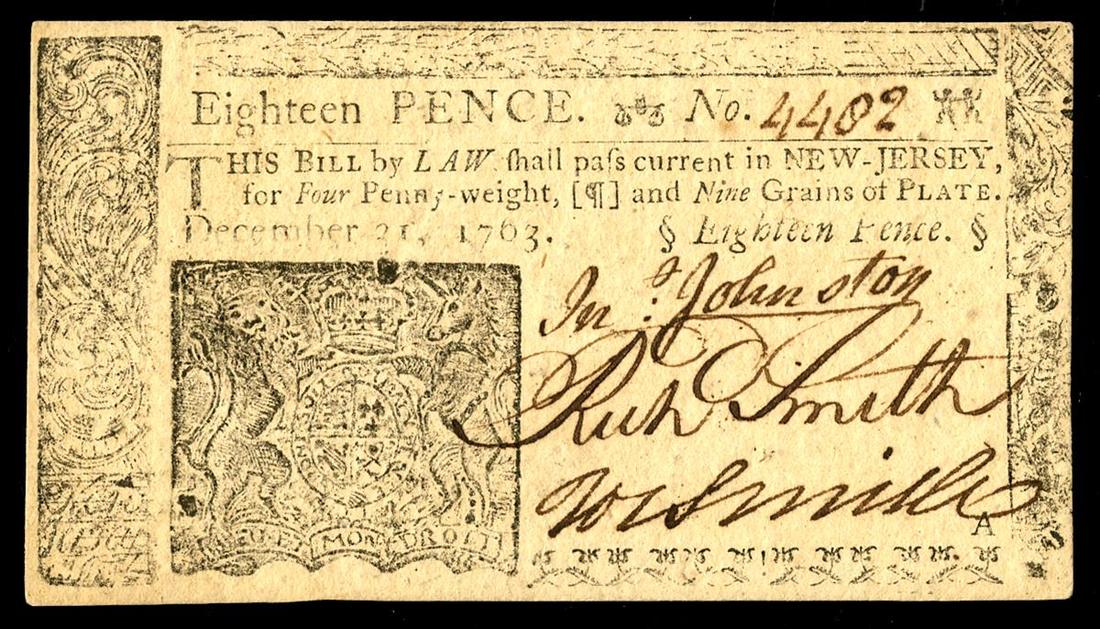 Eighteen PENCE. No. 4482
THIS BILL by LAW shall paſs current in NEW-JERSEY,
for Four Penny-weight, [¶] and Nine Grains of PLATE.
December 31, 1763. § Eighteen Pence. §
Jnº. Johnston
Rich Smith
W Smith
A
DIEU ET MON DROIT